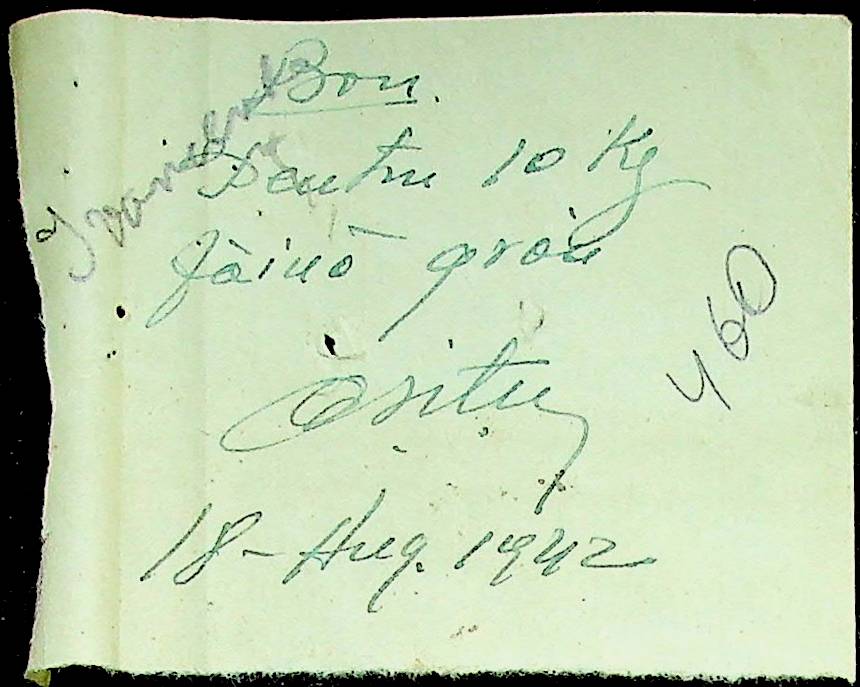 Bon.
Pentru 10 Kg
făină grâu
18 - Aug. 1942
460